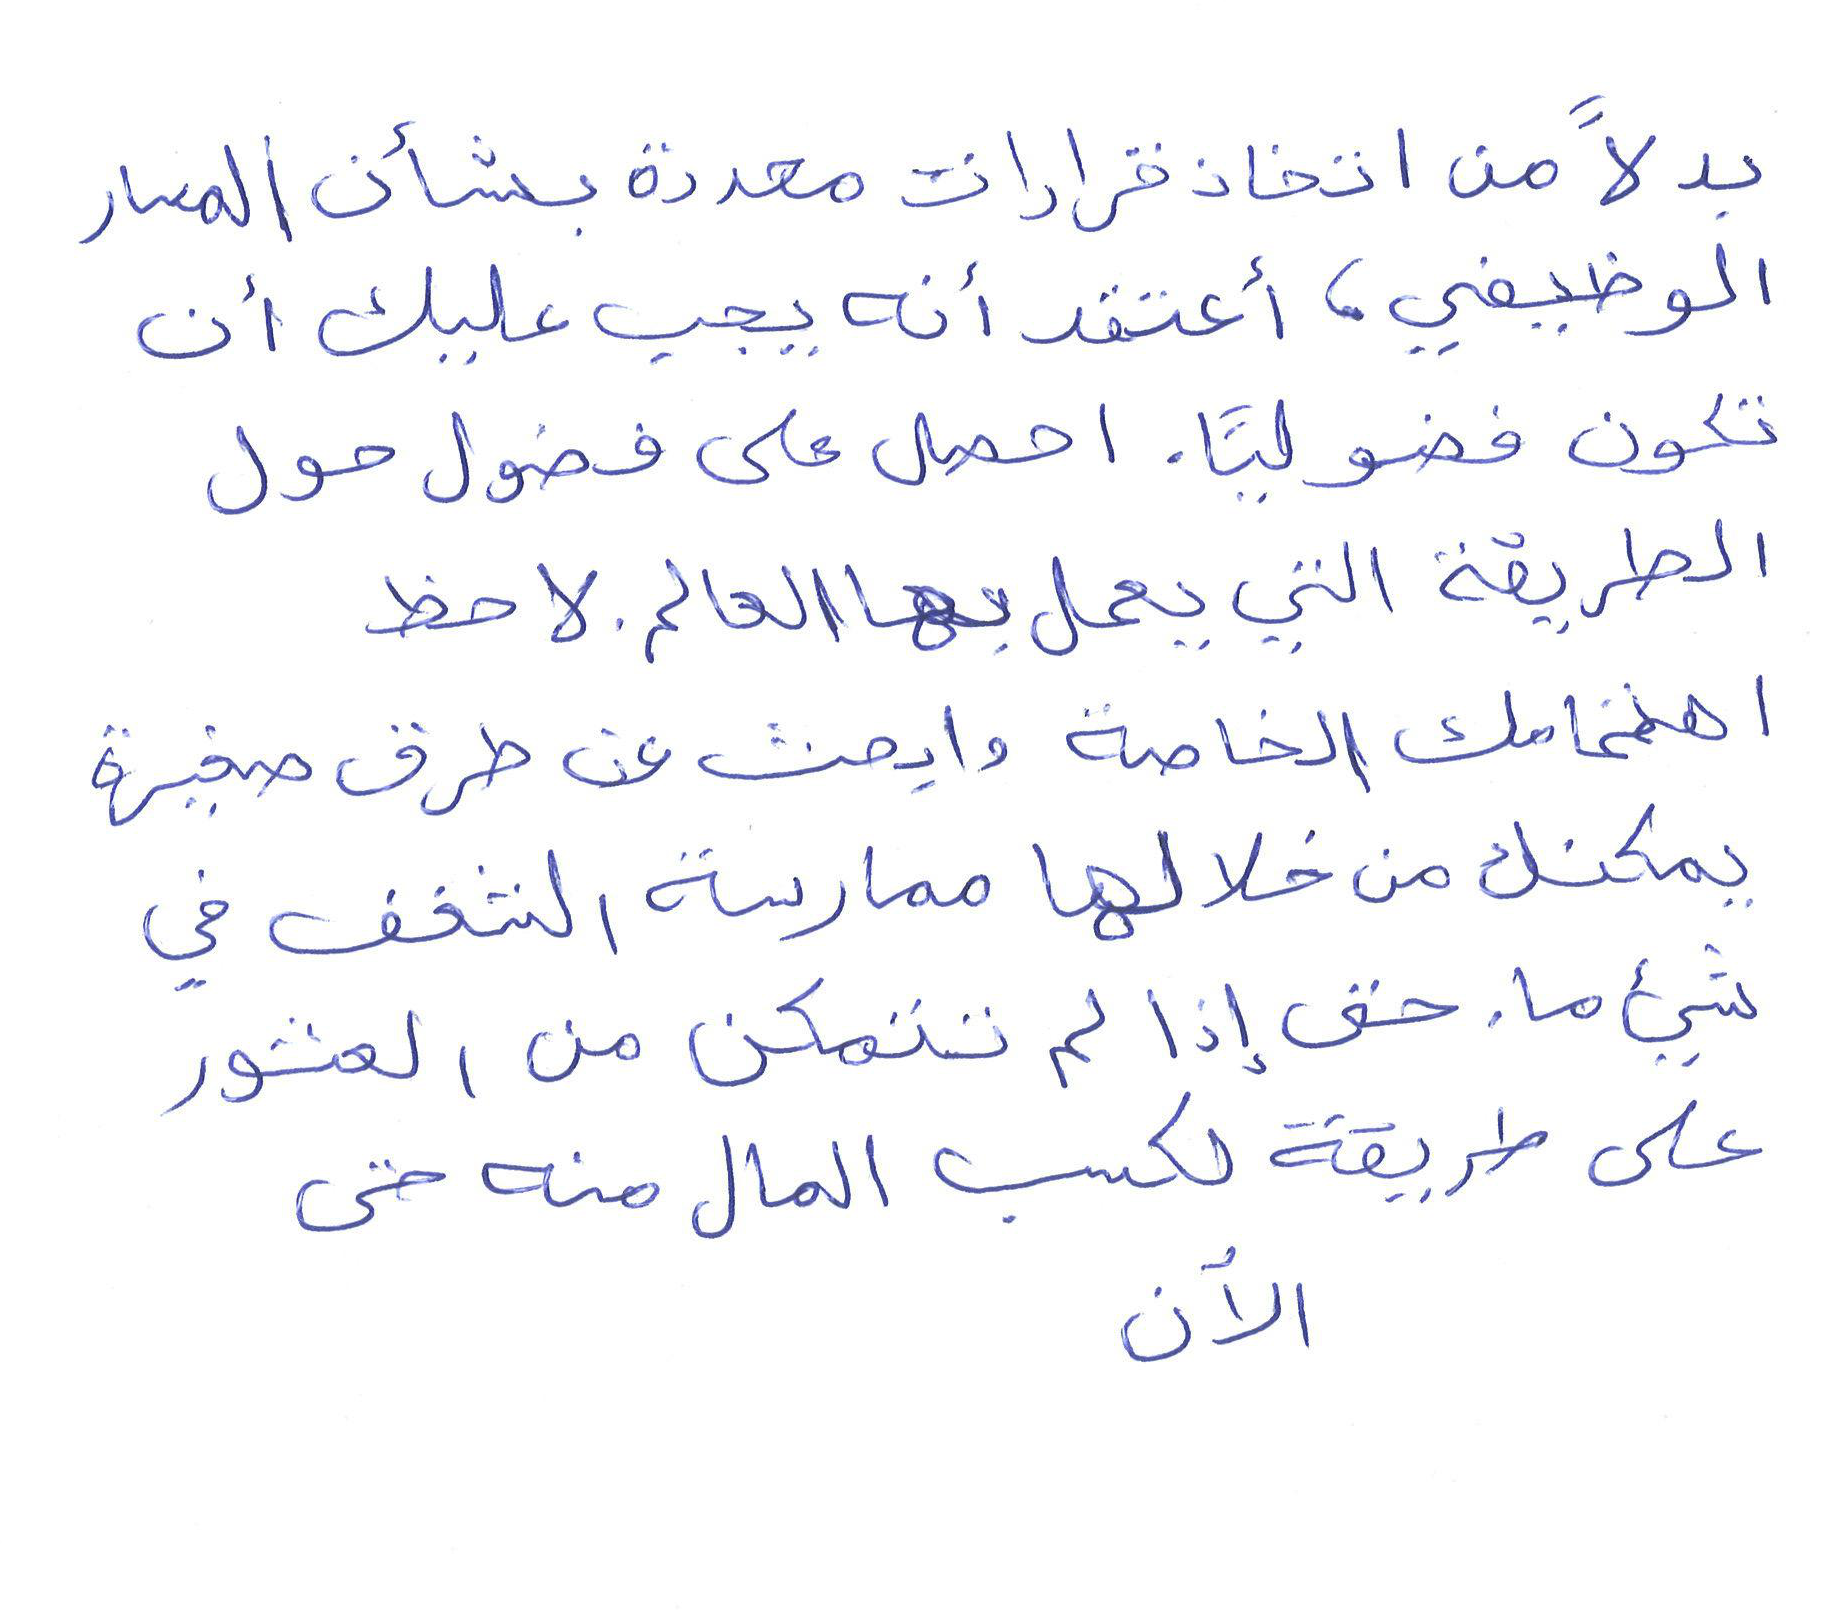 بدلاً من اتخاذ قرارات محددة بشأن المسار
الوظيفي، أعتقد أنه يجب عليك أن
تكون فضوليًا. احصل على فضول حول
الطريقة التي يعمل بها العالم. لاحظ
اهتمامك الخاصة وابحث عن طرق صغيرة
يمكنك من خلالها ممارسة الشغف في
شيئ ما. حتى إذا لم تتمكن من العثور
على طريقة لكسب المال منه حتى
الأن